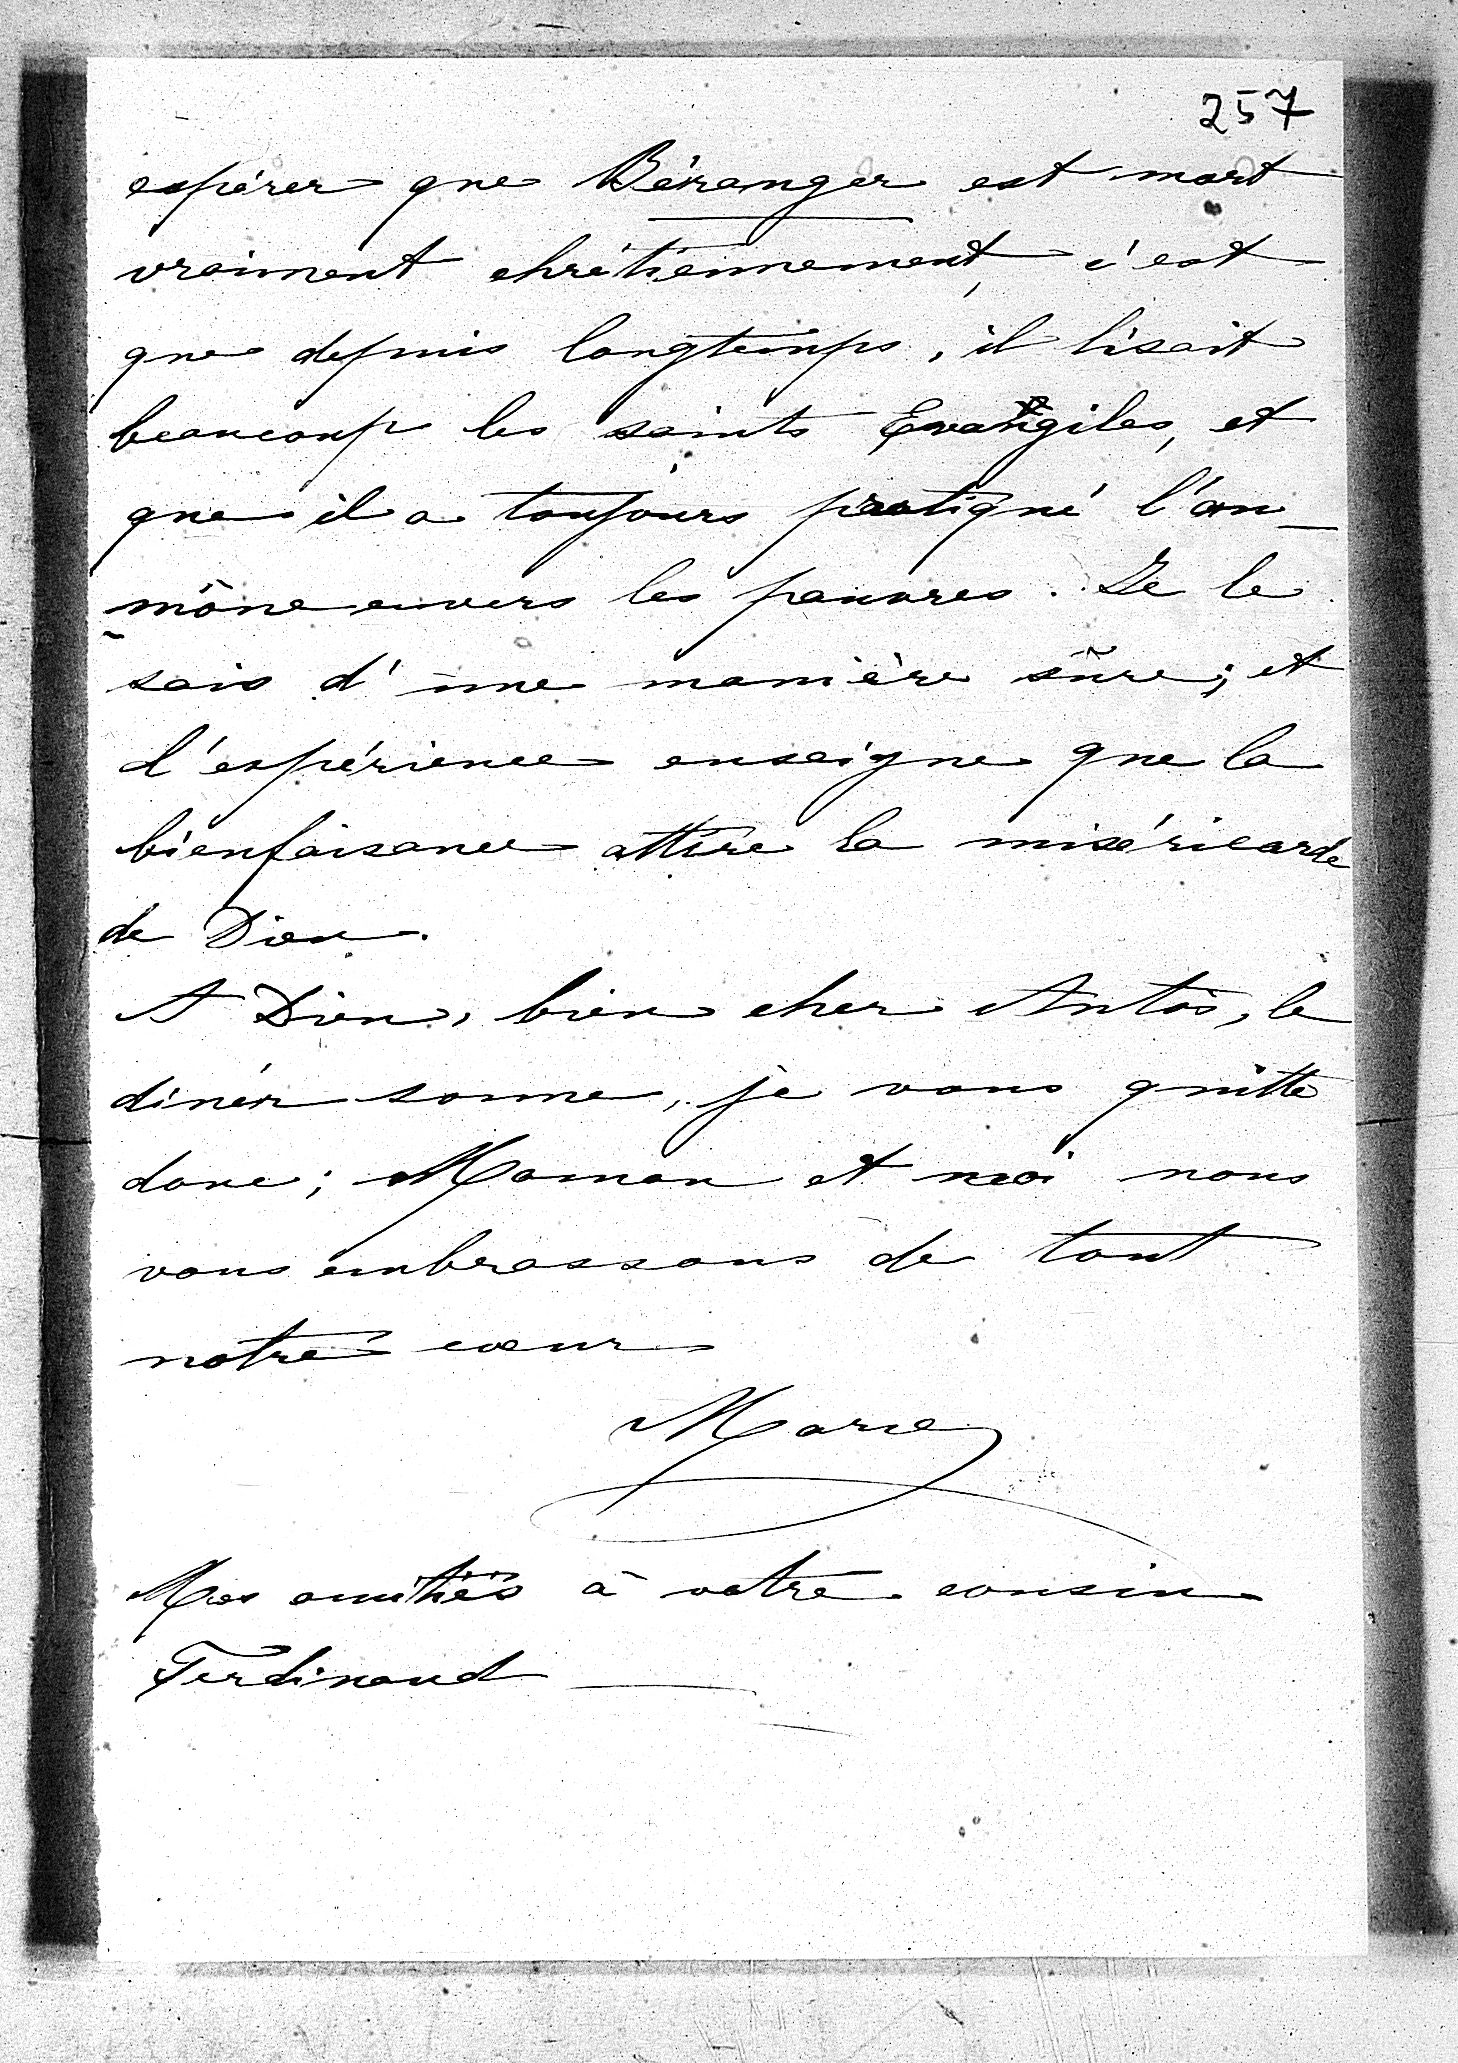 257
espérer que Béranger est mort
vraiment chrétiennement, c'est
que depuis longtemps, il lisait
beaucoup les saints Evangiles, et
que il a toujours pratiqué l'au_
mône envers les pauvres. Je le
sais d'une manière sûre; et
l'expérience enseigne que la
bienfaisance attire la miséricorde
de Dieu.
A Dieu, bien cher Antos, le
dinér sonne, je vous quitte
donc; Maman et moi nous
vous embrassons de tout
notre coeur
Marie
Mes amitiés à votre cousin
Ferdinand